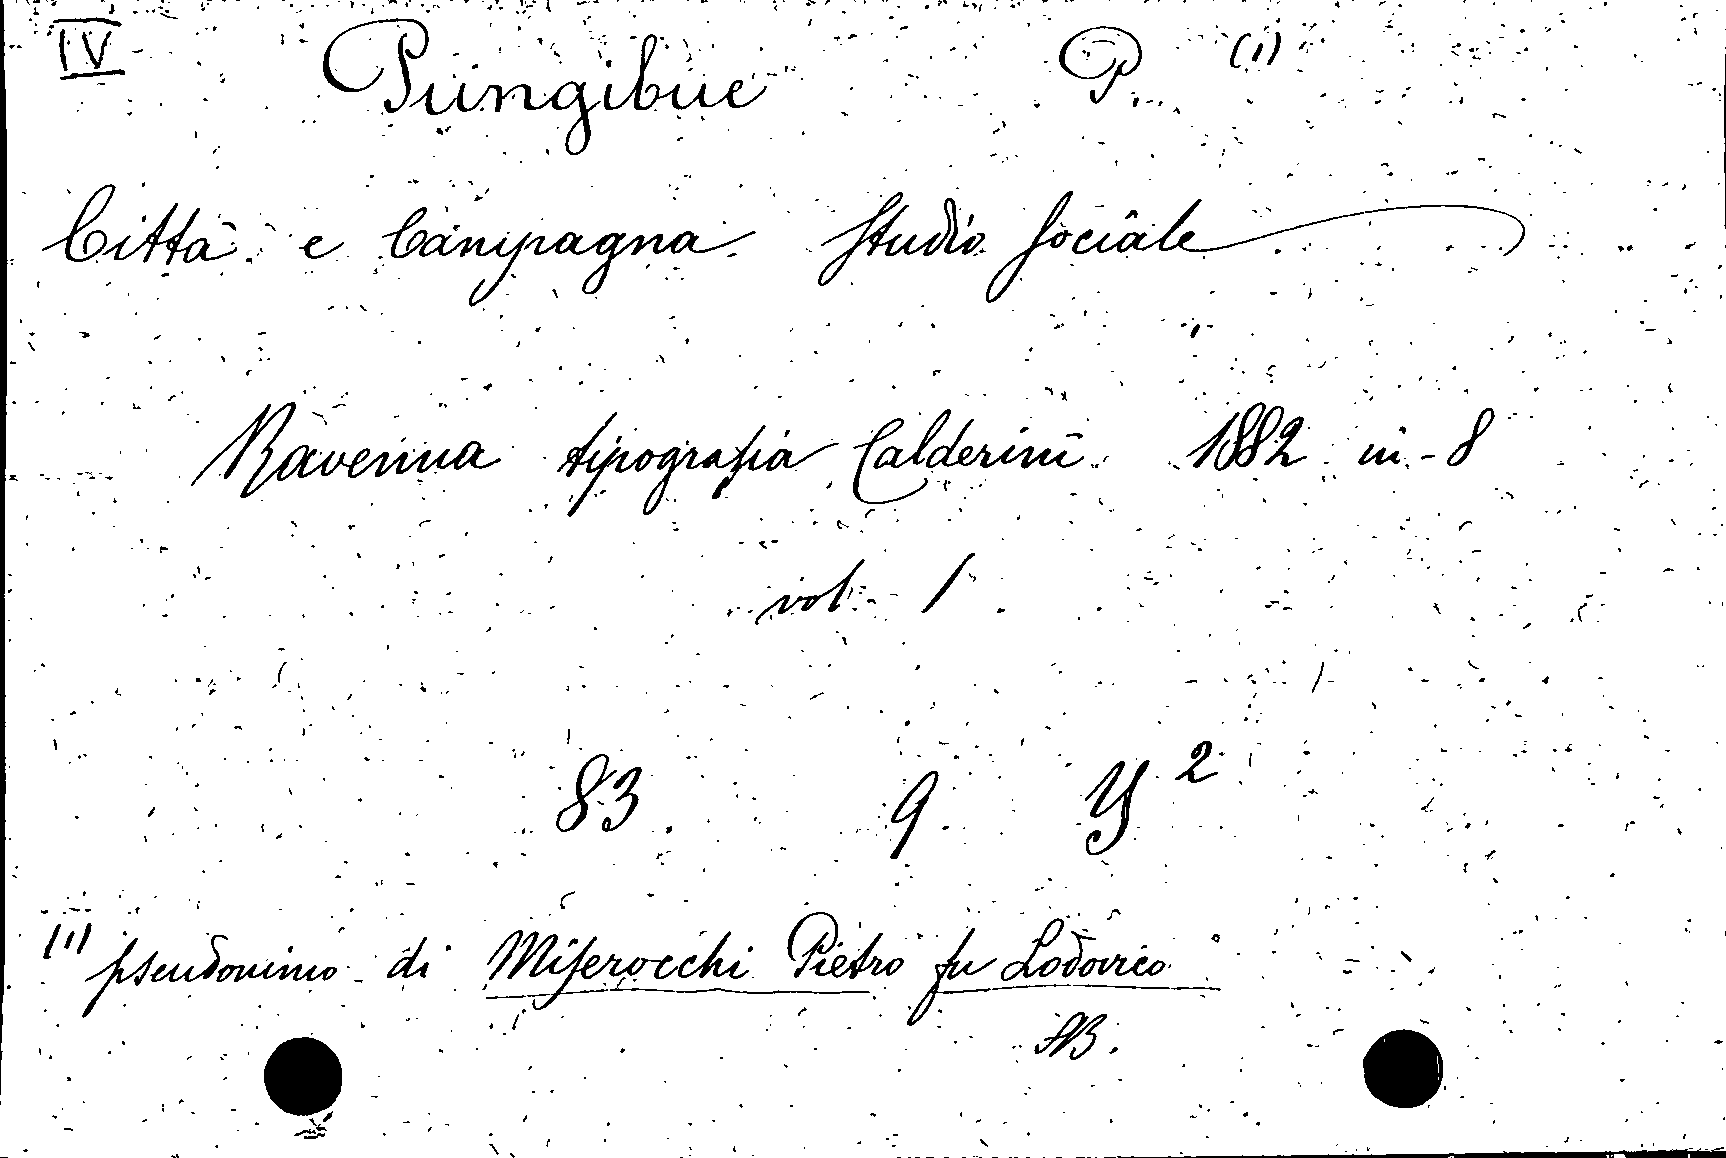 IV Pungibue P (1)
Città e Campagna. Studio sociale
Ravenna tipografia Calderini 1882 in-8
vol. 1
83 9 Y 2
(1) pseudonimo di Miserocchi Pietro fu Lodovico
AB.